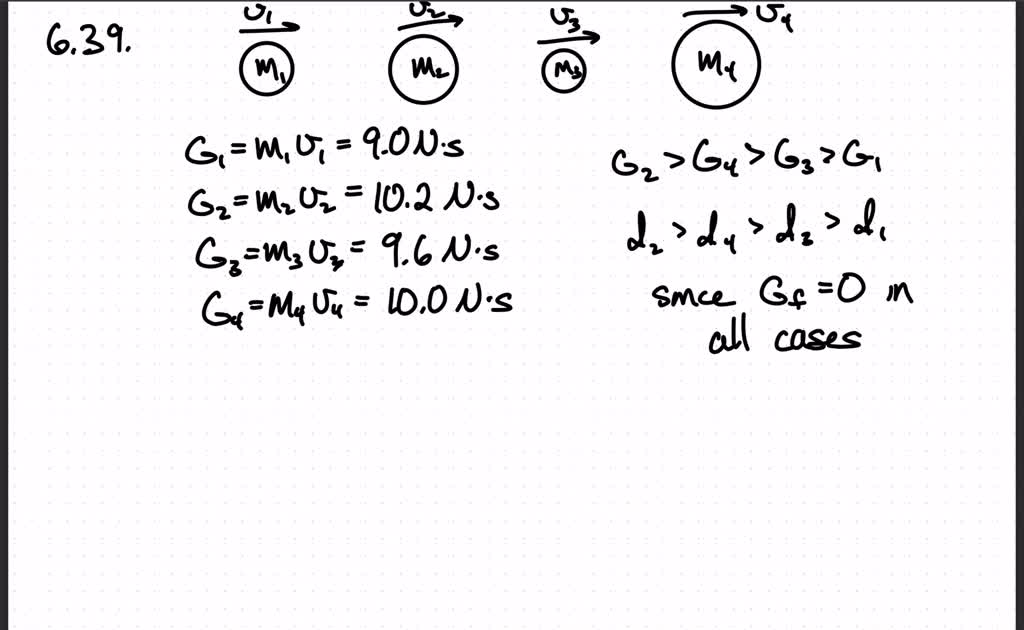 6.39.
v₁ v₂ v₃ v₄
m₁ m₂ m₃ m₄
G₁ = m₁ v₁ = 9.0 N·s
G₂ = m₂ v₂ = 10.2 N·s
G₃ = m₃ v₃ = 9.6 N·s
G₄ = m₄ v₄ = 10.0 N·s
G₂ > G₄ > G₃ > G₁
d₂ > d₄ > d₃ > d₁
since G_f = 0 in
all cases